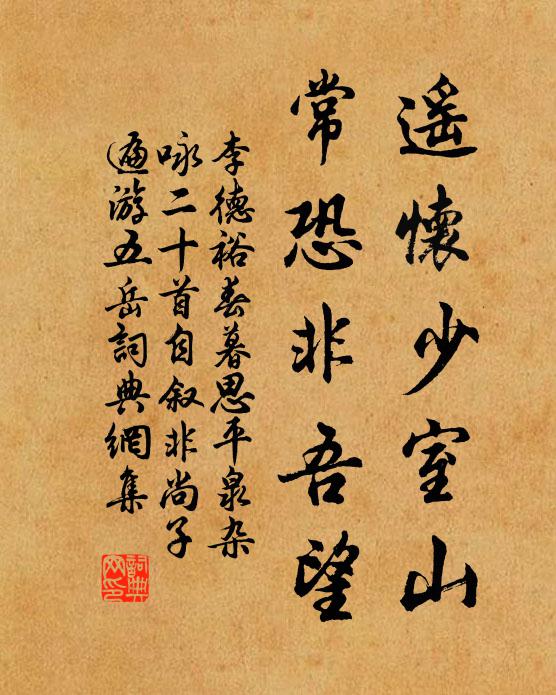 遥懷少室山
常恐非吾望
李德裕春暮思平泉杂
咏二十首自叙非尚子
遍游五岳詞典網集
詞典网印